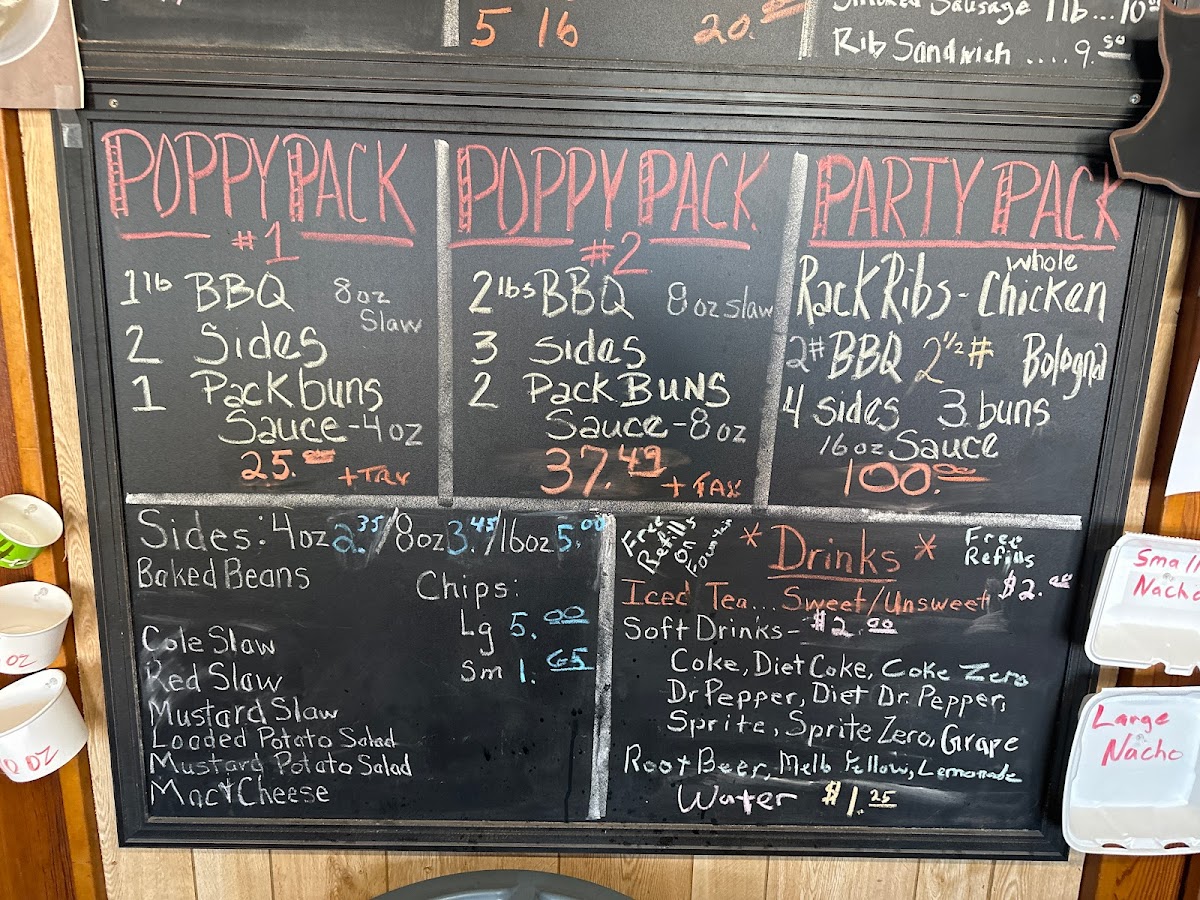 5 lb 20.
Smoked Sausage 1lb...10
Rib Sandwich ....9.50
POPPY PACK
#1
1lb BBQ 8oz
Slaw
2 Sides
1 Pack buns
Sauce-4oz
25.00 +TAX
POPPY PACK
#2
2lbs BBQ 8oz slaw
3 sides
2 PACK BUNS
Sauce-8oz
37.49 + TAX
PARTY PACK
whole
Rack Ribs - Chicken
2# BBQ 2 1/2# Bologna
4 sides 3 buns
16oz Sauce
100.00
Sides: 4oz 2.35/8oz 3.45/16oz 5.00
Baked Beans
Cole Slaw
Red Slaw
Mustard Slaw
Loaded Potato Salad
Mustard Potato Salad
Mac & Cheese
Chips:
Lg 5.00
Sm 1.65
Free
Refills
on
Fountain
* Drinks *
Free
Refills
Iced Tea... Sweet/Unsweet $2.00
Soft Drinks- $2.00
Coke, Diet Coke, Coke Zero
Dr Pepper, Diet Dr. Pepper,
Sprite, Sprite Zero, Grape
Root Beer, Mello Yellow, Lemonade
Water $1.25
Small
Nacho
Large
Nacho
OZ
OZ